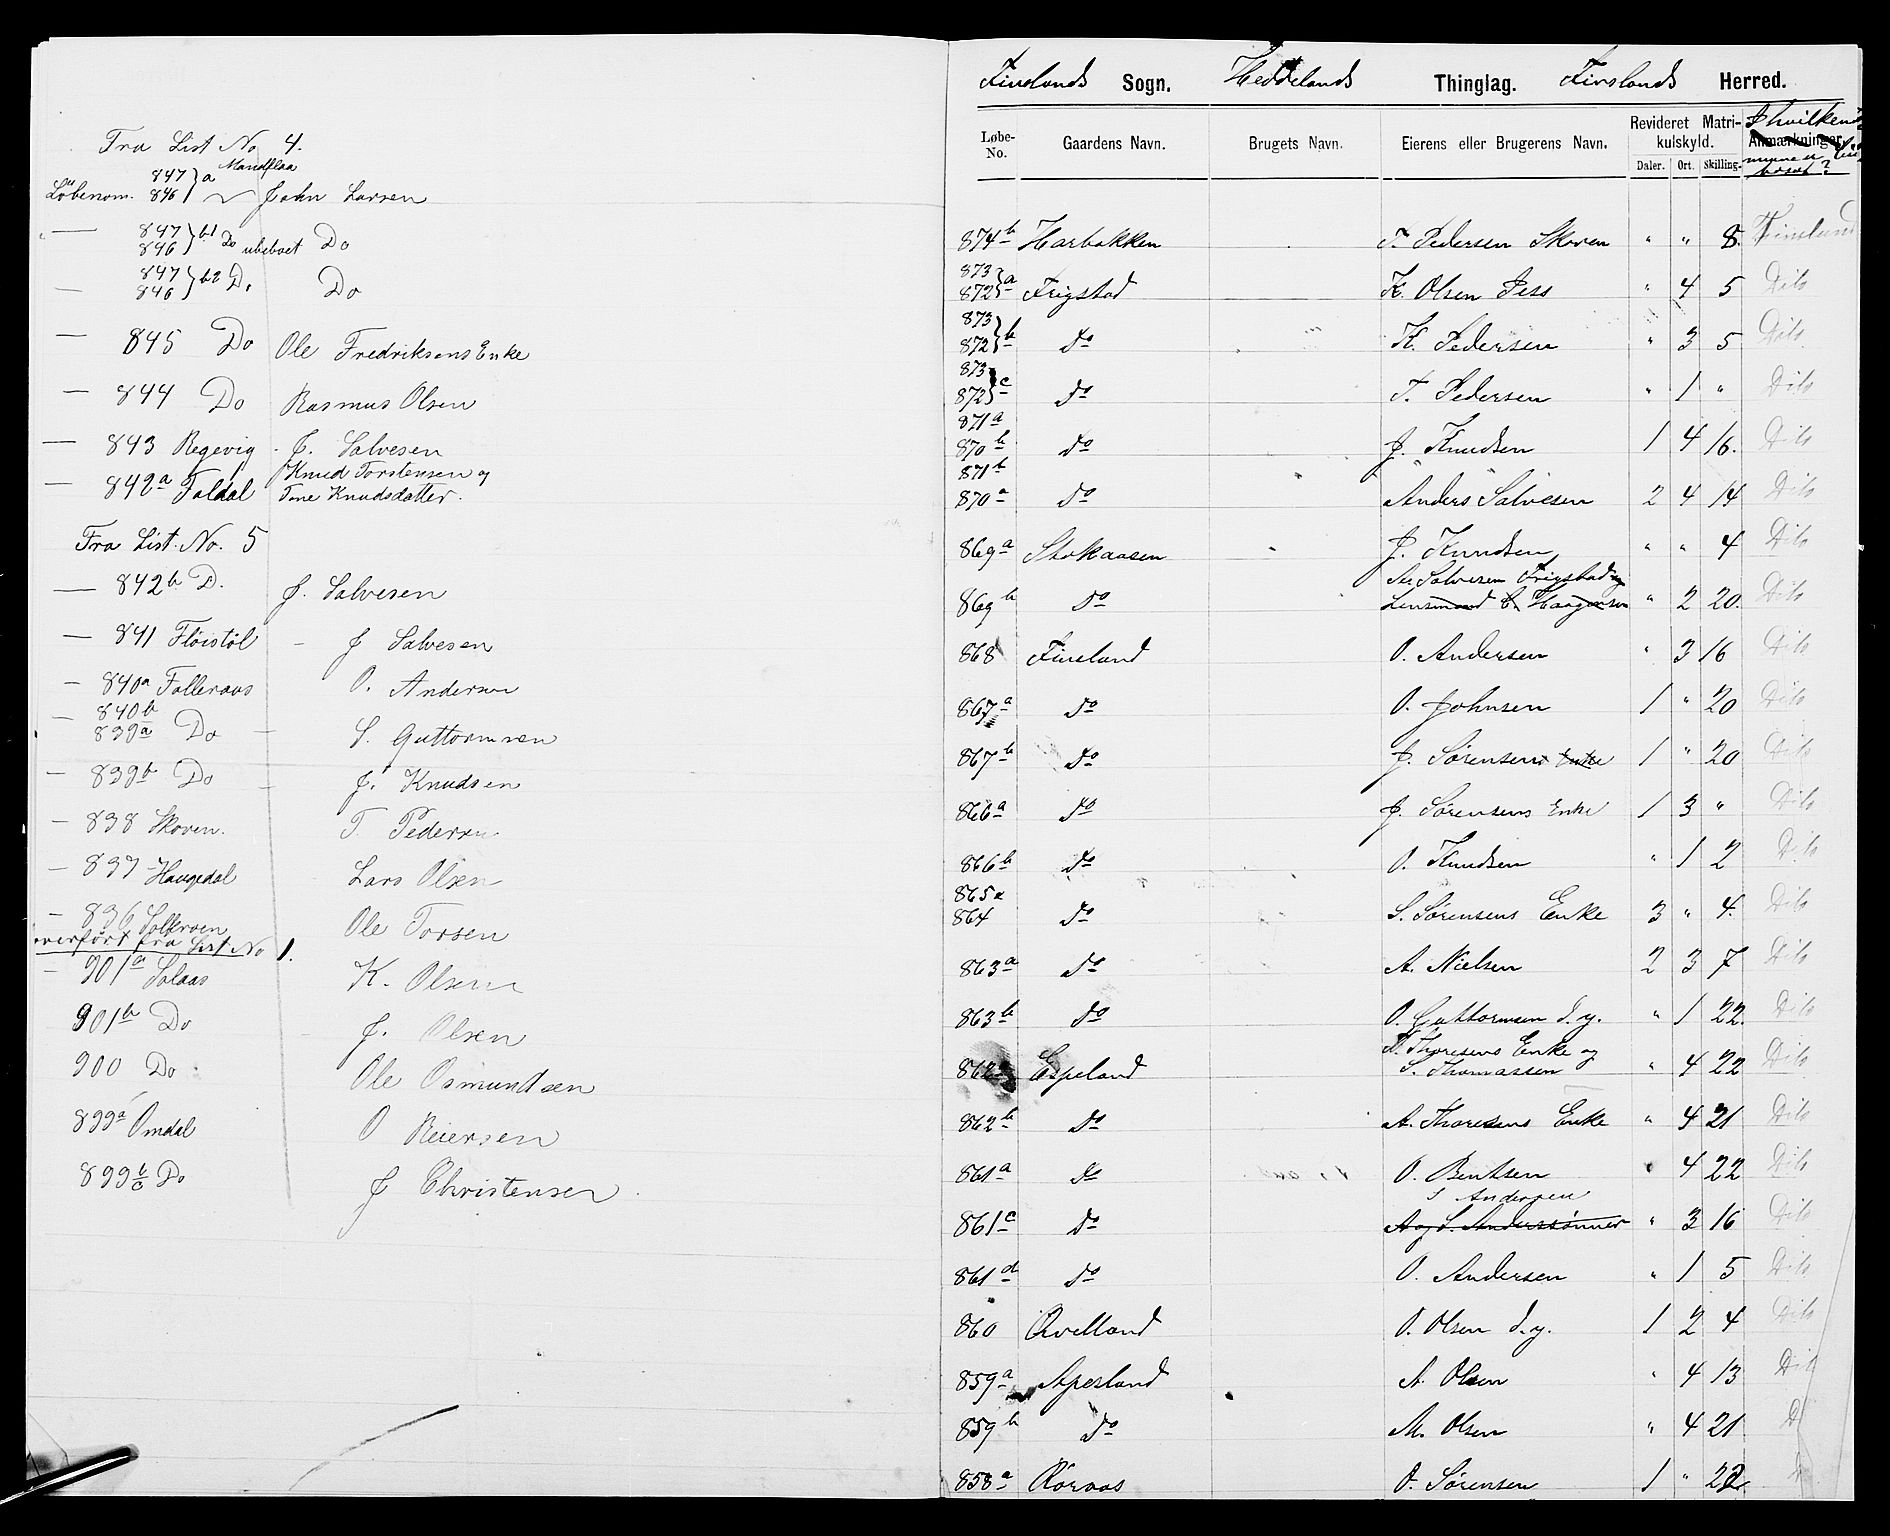 Fra List No 4.
Løbenom. 847 } a Mandflaa
846 } John Larsen
— 847 } b1 Do ubeboet Do
846
— 847 } b2 Do Do
846
— 845 Do Ole Fredriksens Enke
— 844 Do Rasmus Olsen
— 843 Regevig - J. Salvesen
— 842a Faldal Knud Torstensen og
Tone Knudsdatter.
Fra List. No. 5
— 842b D. J. Salvesen
— 841 Fløistøl - J Salvesen
— 840a Falleraas O. Andersen
— 840b
839a Do - S. Guttormsen
— 839b Do - J. Knudsen
— 838 Skoven. T. Pedersen
— 837 Haugedal Lars Olsen
— 836 Ole Torsen
overført fra List No 1.
— 901a Solaas K. Olsen
901b Do - J. Olsen
900 Do Ole Osmundsen
899a Omdal O Reiersen
899 b/c Do J Christensen
Finslands Sogn. Heddelands Thinglag. Finslands Herred.
Løbe-No. Gaardens Navn. Brugets Navn. Eierens eller Brugerens Navn. Revideret Matrikulskyld. Daler. Ort. Skilling. Anmærkninger. I hvilken
874b Harbakken T. Pedersen Skoven " " 8. Finsland
873 } a
872 } Frigstad K. Olsen Less " 4 5 Dito
873 } b
872 } Do K. Pedersen " 3 5 Dito
873 } c
872 } Do T. Pedersen " 1 " Dito
871a
870b Do J. Knudsen 1 4 16. Dito
871b
870a Do Anders Salvesen 2 4 14 Dito
869a Stokaasen J. Knudsen " " 4 Dito
Salvesen Frigstad
869b Do Lensmand C. Haagensen " 2 20. Dito
868 Finsland O. Andersen " 3 16 Dito
867a Do O. Johnsen 1 " 20 Dito
867b Do J. Sørensens Enke 1 " 20 Dito
866a Do J. Sørensens Enke 1 3 " Dito
866b Do O. Knudsen " 1 2 Dito
865a
864 Do S. Sørensens Enke 3 " 4. Dito
863a Do A. Nielsen 2 3 7 Dito
863b Do O. Guttormsen d.y. " 1 22. Dito
T. Thoresens Enke og
862a Espeland S. Thomassen " 4 22 Dito
862b Do A. Thoresens Enke " 4 21 Dito
861a Do O. Bentsen " 4 22 Dito
S Andersen
861c Do A og S. Anderssønner " 3 16 Dito
861d Do O. Andersen " 1 5 Dito
860 Qvelland O. Olsen d.y. 1 2 4 Dito
859a Apesland A. Olsen " 4 13 Dit
859b Do M. Olsen " 4 21 D
858a Røraas O. Sørensen 1 " 22 D